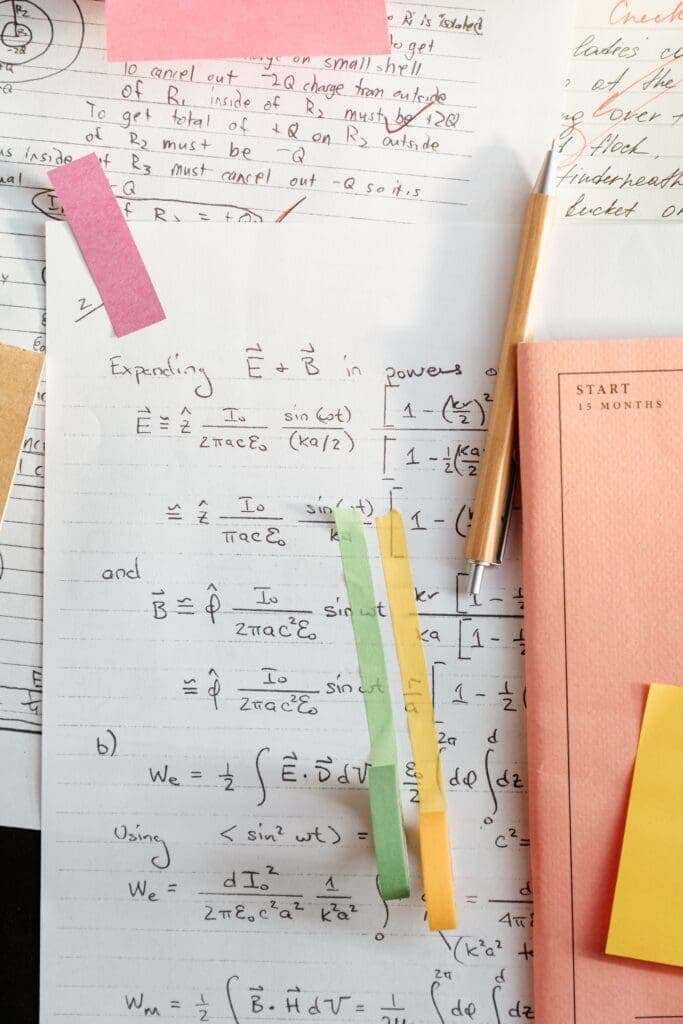 R₂
R₁
-2Q
+Q
-Q
Ri is isolated
to get
on small shell
To cancel out -2Q charge from outside
of R₁ inside of R₂ must be +2Q
To get total of +Q on R₂ outside
of R₂ must be -Q
inside of R₃ must cancel out -Q so it is
-Q
of R₂ = +Q
Check
ladies
at the
over
flock,
underneath
bucket on
2
Expending E⃗ + B⃗ in powers
E⃗ ≅ ẑ I₀/(2πacε₀) sin(ωt)/(ka/2) [1 - (kr/2)²
[1 - ½(ka
≅ ẑ I₀/(πacε₀) sin(ωt)/ka [1 - (
and
B⃗ ≅ φ̂ I₀/(2πac²ε₀) sin ωt kr/ka [1 - ½
[1 - ½
≅ φ̂ I₀/(2πac²ε₀) sin ωt [1 - ½(
b)
We = ½ ∫ E⃗·D⃗ dV ε₀/2 2π dφ ∫₀ᵈ dz
Using < sin² ωt > = c² =
We = dI₀²/(2πε₀c²a²) 1/(k²a²) ∫₀ = d/4πε
(k²a²
Wm = ½ ∫ B⃗·H⃗ dV = 1/2μ ∫ 2π dφ ∫ d dz
START
15 MONTHS